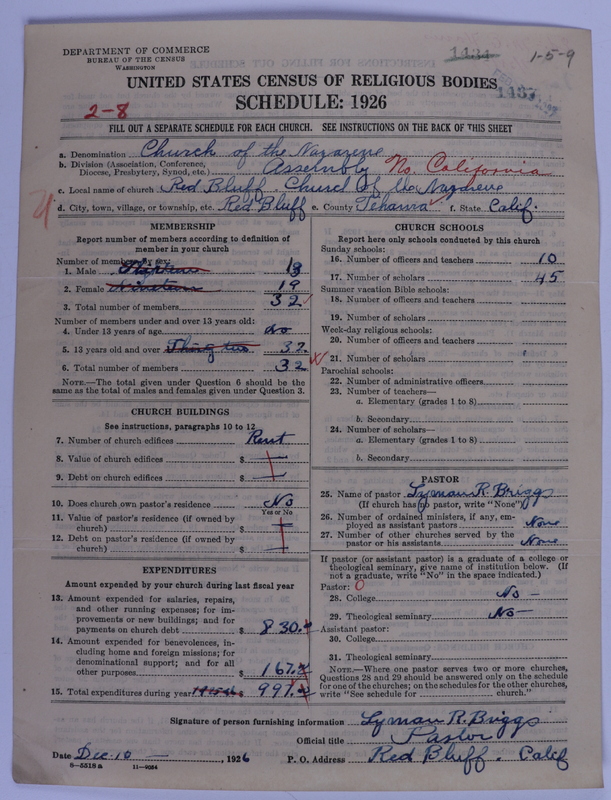 DEPARTMENT OF COMMERCE
BUREAU OF THE CENSUS
WASHINGTON
1434
1-5-9
UNITED STATES CENSUS OF RELIGIOUS BODIES
1437
SCHEDULE: 1926
2-8
FILL OUT A SEPARATE SCHEDULE FOR EACH CHURCH. SEE INSTRUCTIONS ON THE BACK OF THIS SHEET
a. Denomination Church of the Nazarene
b. Division (Association, Conference, Diocese, Presbytery, Synod, etc.) Assembly No. California
c. Local name of church Red Bluff. Church of the Nazarene
d. City, town, village, or township, etc. Red Bluff e. County Tehama f. State Calif.
MEMBERSHIP
Report number of members according to definition of
member in your church
Number of members by sex:
1. Male 13
2. Female Nineteen 19
3. Total number of members 32
Number of members under and over 13 years old:
4. Under 13 years of age No
5. 13 years old and over Thirty two 32
6. Total number of members 32
NOTE.—The total given under Question 6 should be
same as the total of males and females given under Question 3.
CHURCH BUILDINGS
See instructions, paragraphs 10 to 12
7. Number of church edifices Rent
8. Value of church edifices $
9. Debt on church edifices $
10. Does church own pastor's residence No
Yes or No
11. Value of pastor's residence (if owned by
church) $
12. Debt on pastor's residence (if owned by
church) $
EXPENDITURES
Amount expended by your church during last fiscal year
13. Amount expended for salaries, repairs,
and other running expenses; for im-
provements or new buildings; and for
payments on church debt $ 830.
14. Amount expended for benevolences, in-
cluding home and foreign missions; for
denominational support; and for all
other purposes $ 167.
15. Total expenditures during year $ 997.
CHURCH SCHOOLS
Report here only schools conducted by this church
Sunday schools:
16. Number of officers and teachers 10
17. Number of scholars 45
Summer vacation Bible schools:
18. Number of officers and teachers
19. Number of scholars
Week-day religious schools:
20. Number of officers and teachers
21. Number of scholars
Parochial schools:
22. Number of administrative officers
23. Number of teachers—
a. Elementary (grades 1 to 8)
b. Secondary
24. Number of scholars—
a. Elementary (grades 1 to 8)
b. Secondary
PASTOR
25. Name of pastor Lyman R. Briggs
(If church has no pastor, write "None")
26. Number of ordained ministers, if any, em-
ployed as assistant pastors None
27. Number of other churches served by the
pastor or his assistants None
If pastor (or assistant pastor) is a graduate of a college or
theological seminary, give name of institution below. (If
not a graduate, write "No" in the space indicated.)
Pastor: O
28. College No —
29. Theological seminary No —
Assistant pastor:
30. College
31. Theological seminary
NOTE.—Where one pastor serves two or more churches,
Questions 28 and 29 should be answered only on the schedule
for one of the churches; on the schedules for the other churches,
write "See schedule for church."
Signature of person furnishing information Lyman R. Briggs
Official title Pastor
Date Dec. 10 —, 1926 P. O. Address Red Bluff. Calif
8—5518 a 11—9054